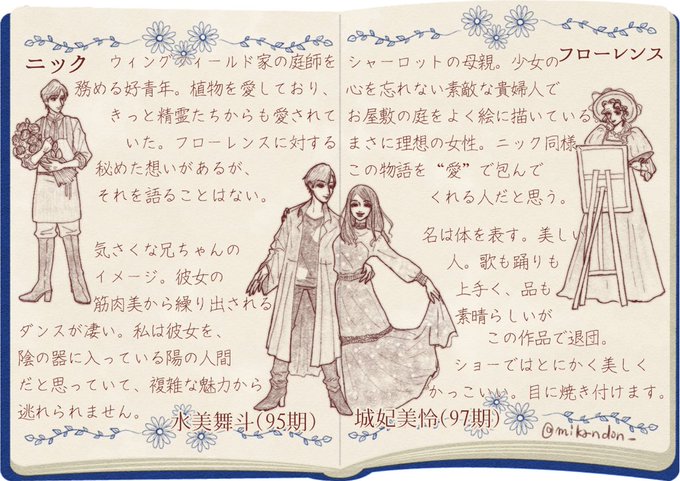 ニック
ウィングフィールド家の庭師を
務める好青年。植物を愛しており、
きっと精霊たちからも愛されて
いた。フローレンスに対する
秘めた想いがあるが、
それを語ることはない。
気さくな兄ちゃんの
イメージ。彼女の
筋肉美から繰り出される
ダンスが凄い。私は彼女を、
陰の器に入っている陽の人間
だと思っていて、複雑な魅力から
逃れられません。
水美舞斗(95期)
フローレンス
シャーロットの母親。少女の
心を忘れない素敵な貴婦人で
お屋敷の庭をよく絵に描いている
まさに理想の女性。ニック同様
この物語を“愛”で包んで
くれる人だと思う。
名は体を表す。美しい
人。歌も踊りも
上手く、品も
素晴らしいが
この作品で退団。
ショーではとにかく美しく
かっこいい。目に焼き付けます。
城妃美怜(97期)
@mikandon_